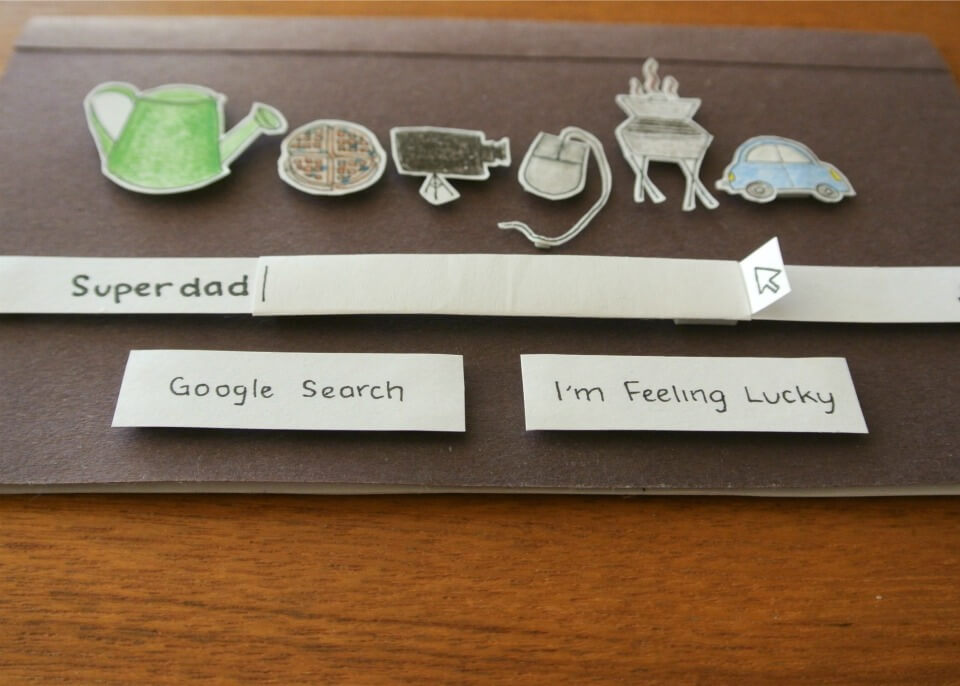 Superdad
Google Search
I'm Feeling Lucky